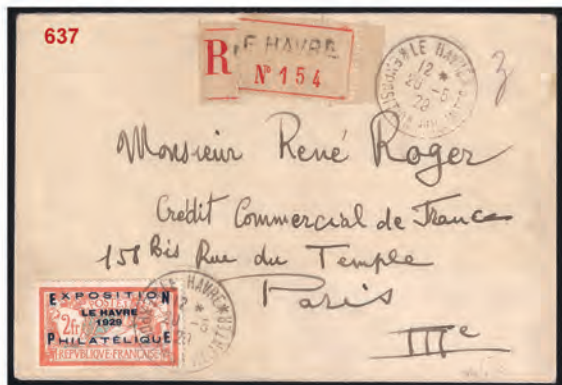 637
R LE HAVRE
N° 154
LE HAVRE
12 *
20 -5
29
3
Monsieur René Roger
Crédit Commercial de France
158 Bis Rue du Temple
Paris
IIIe
EXPOSITION
LE HAVRE
1929
PHILATÉLIQUE
2fr
REPVBLIQVE FRANÇAISE
LE HAVRE
12 *
-5
29